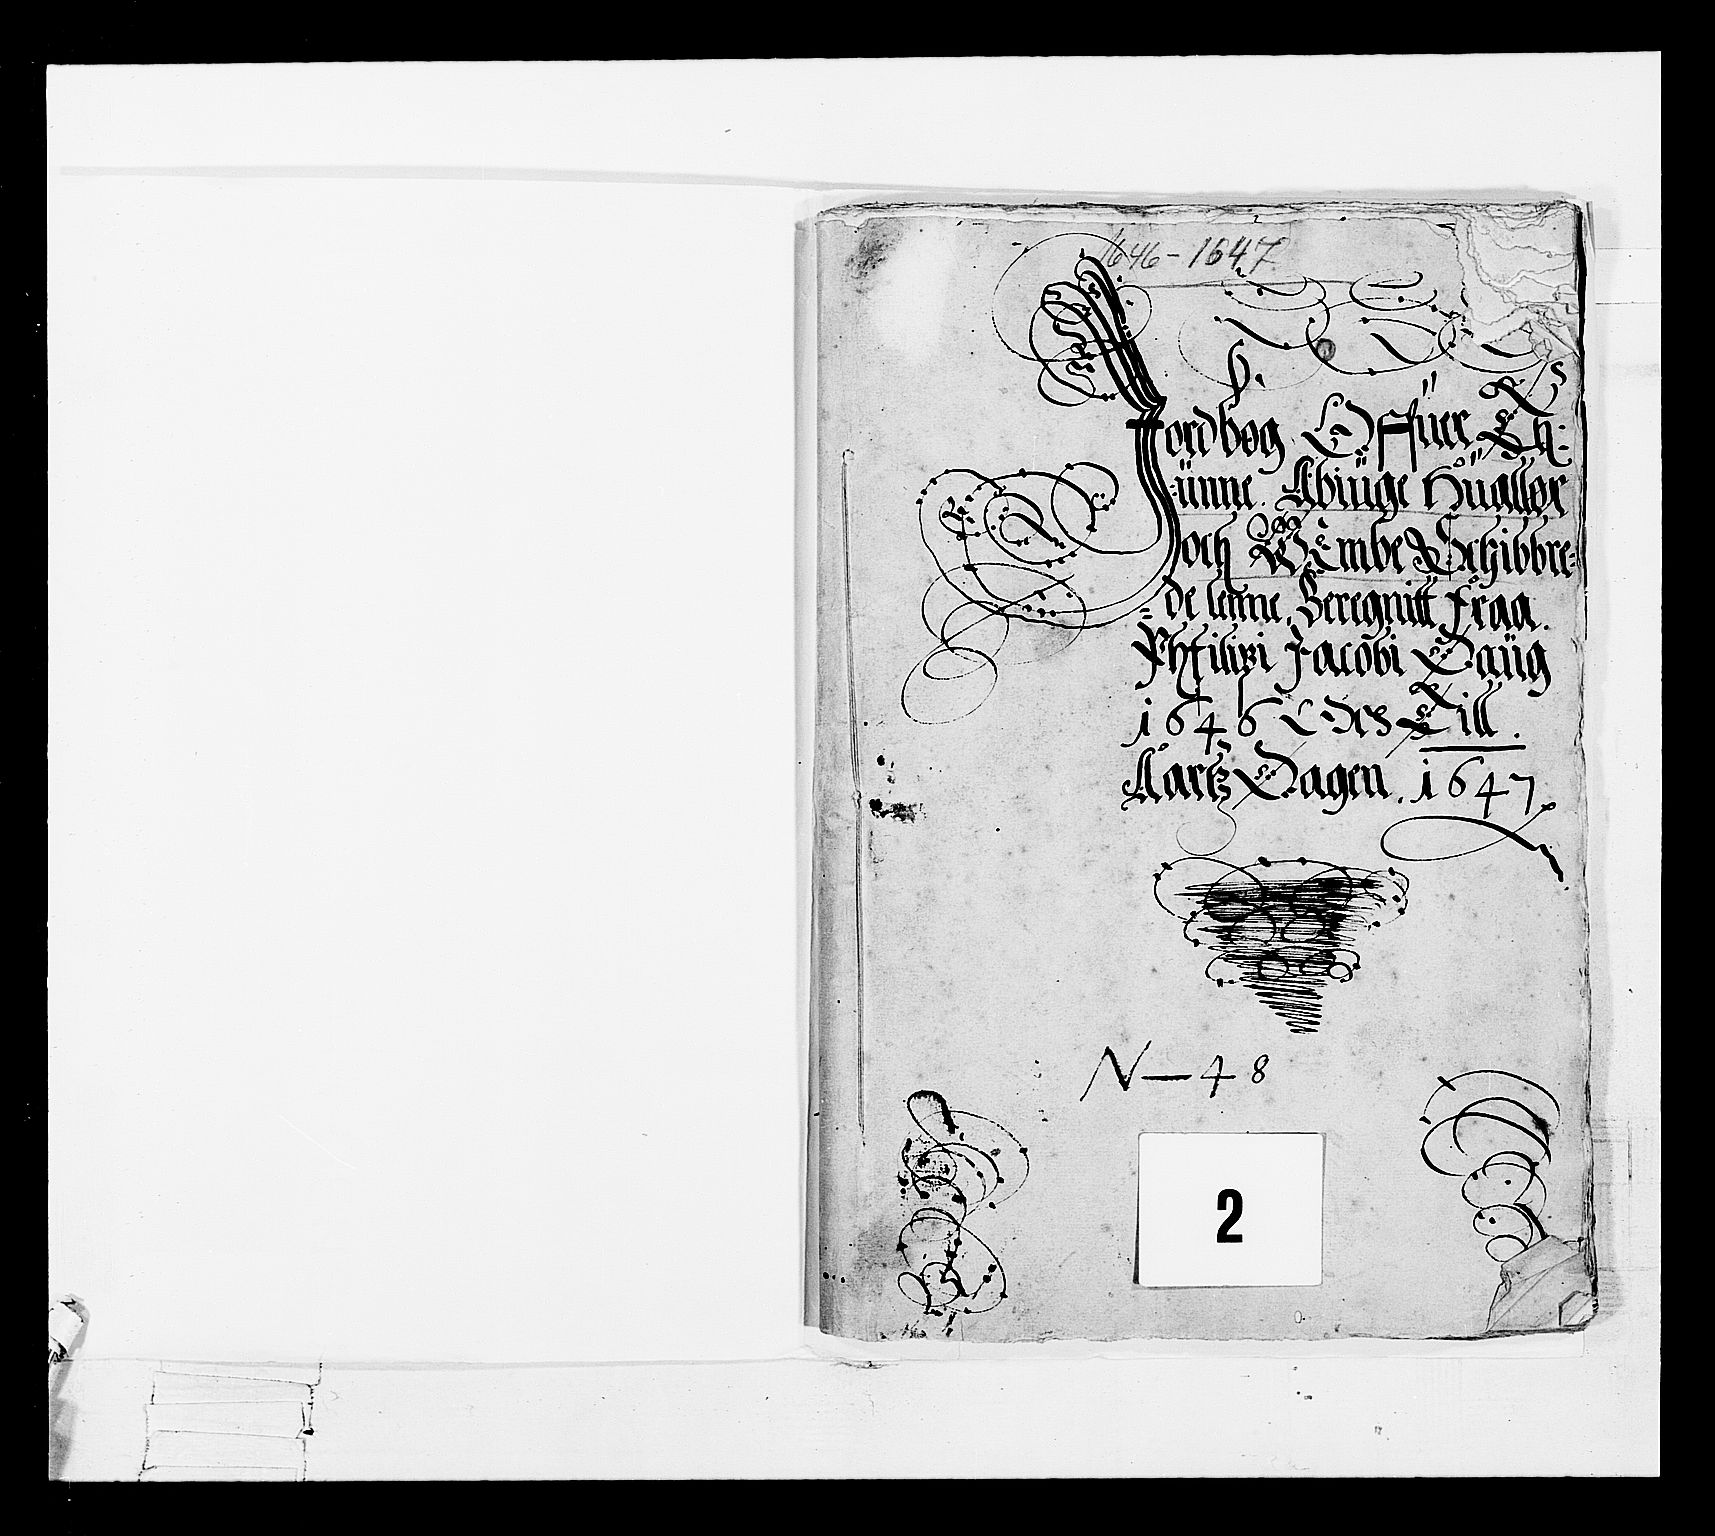 1646-1647
Jordbog Offuer Th=
=ünne. Abiüge Hualløer
och Embe Schibbre=
=de lenne, Beregnitt fraa.
Philipi Jacobi Daüg
1646 Och Till.
Aartz Dagen. 1647.
N—48
2